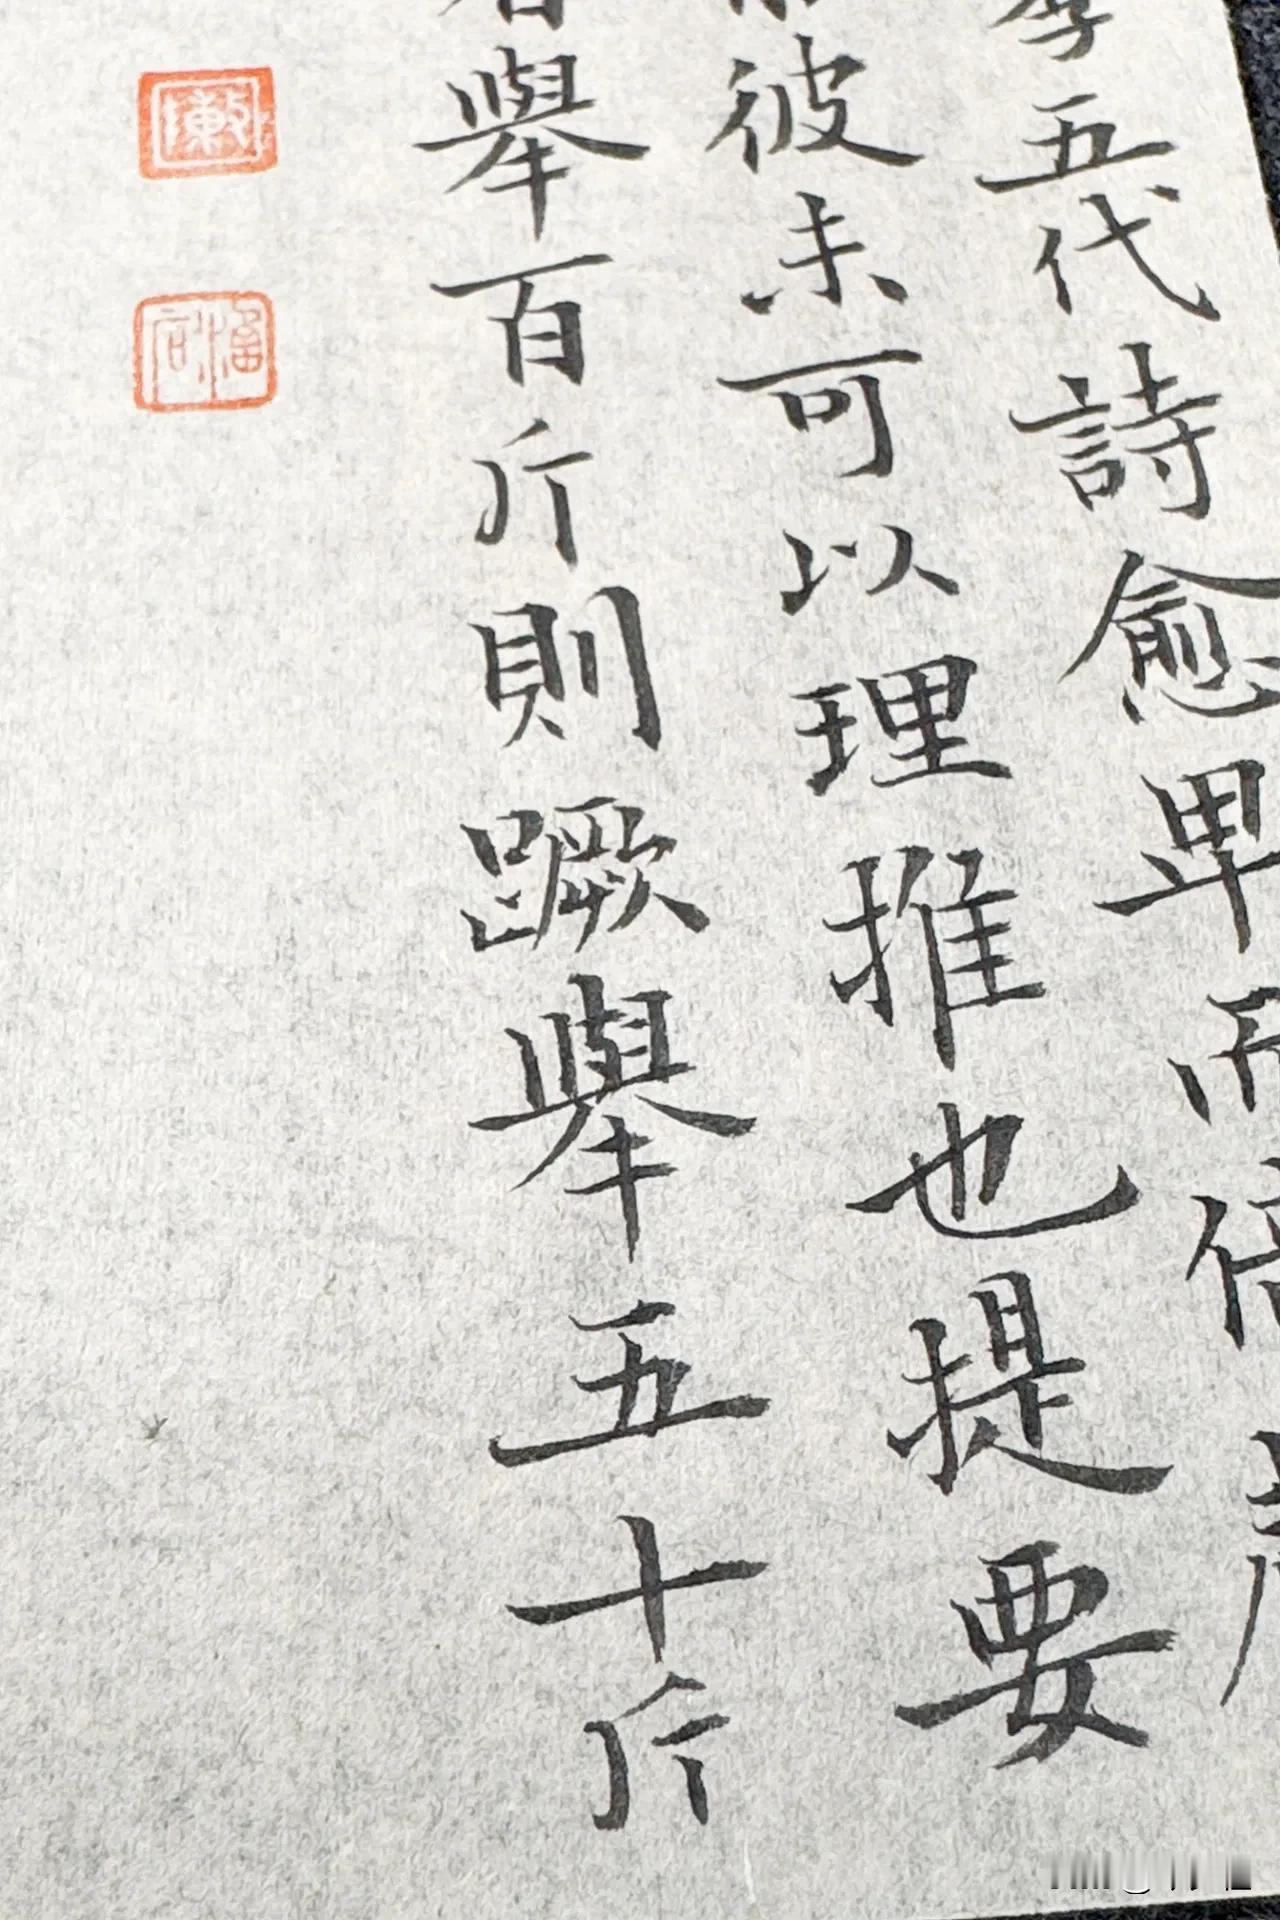 五代詩愈卑而倍
彼未可以理推也提要
舉百斤則蹶舉五十斤